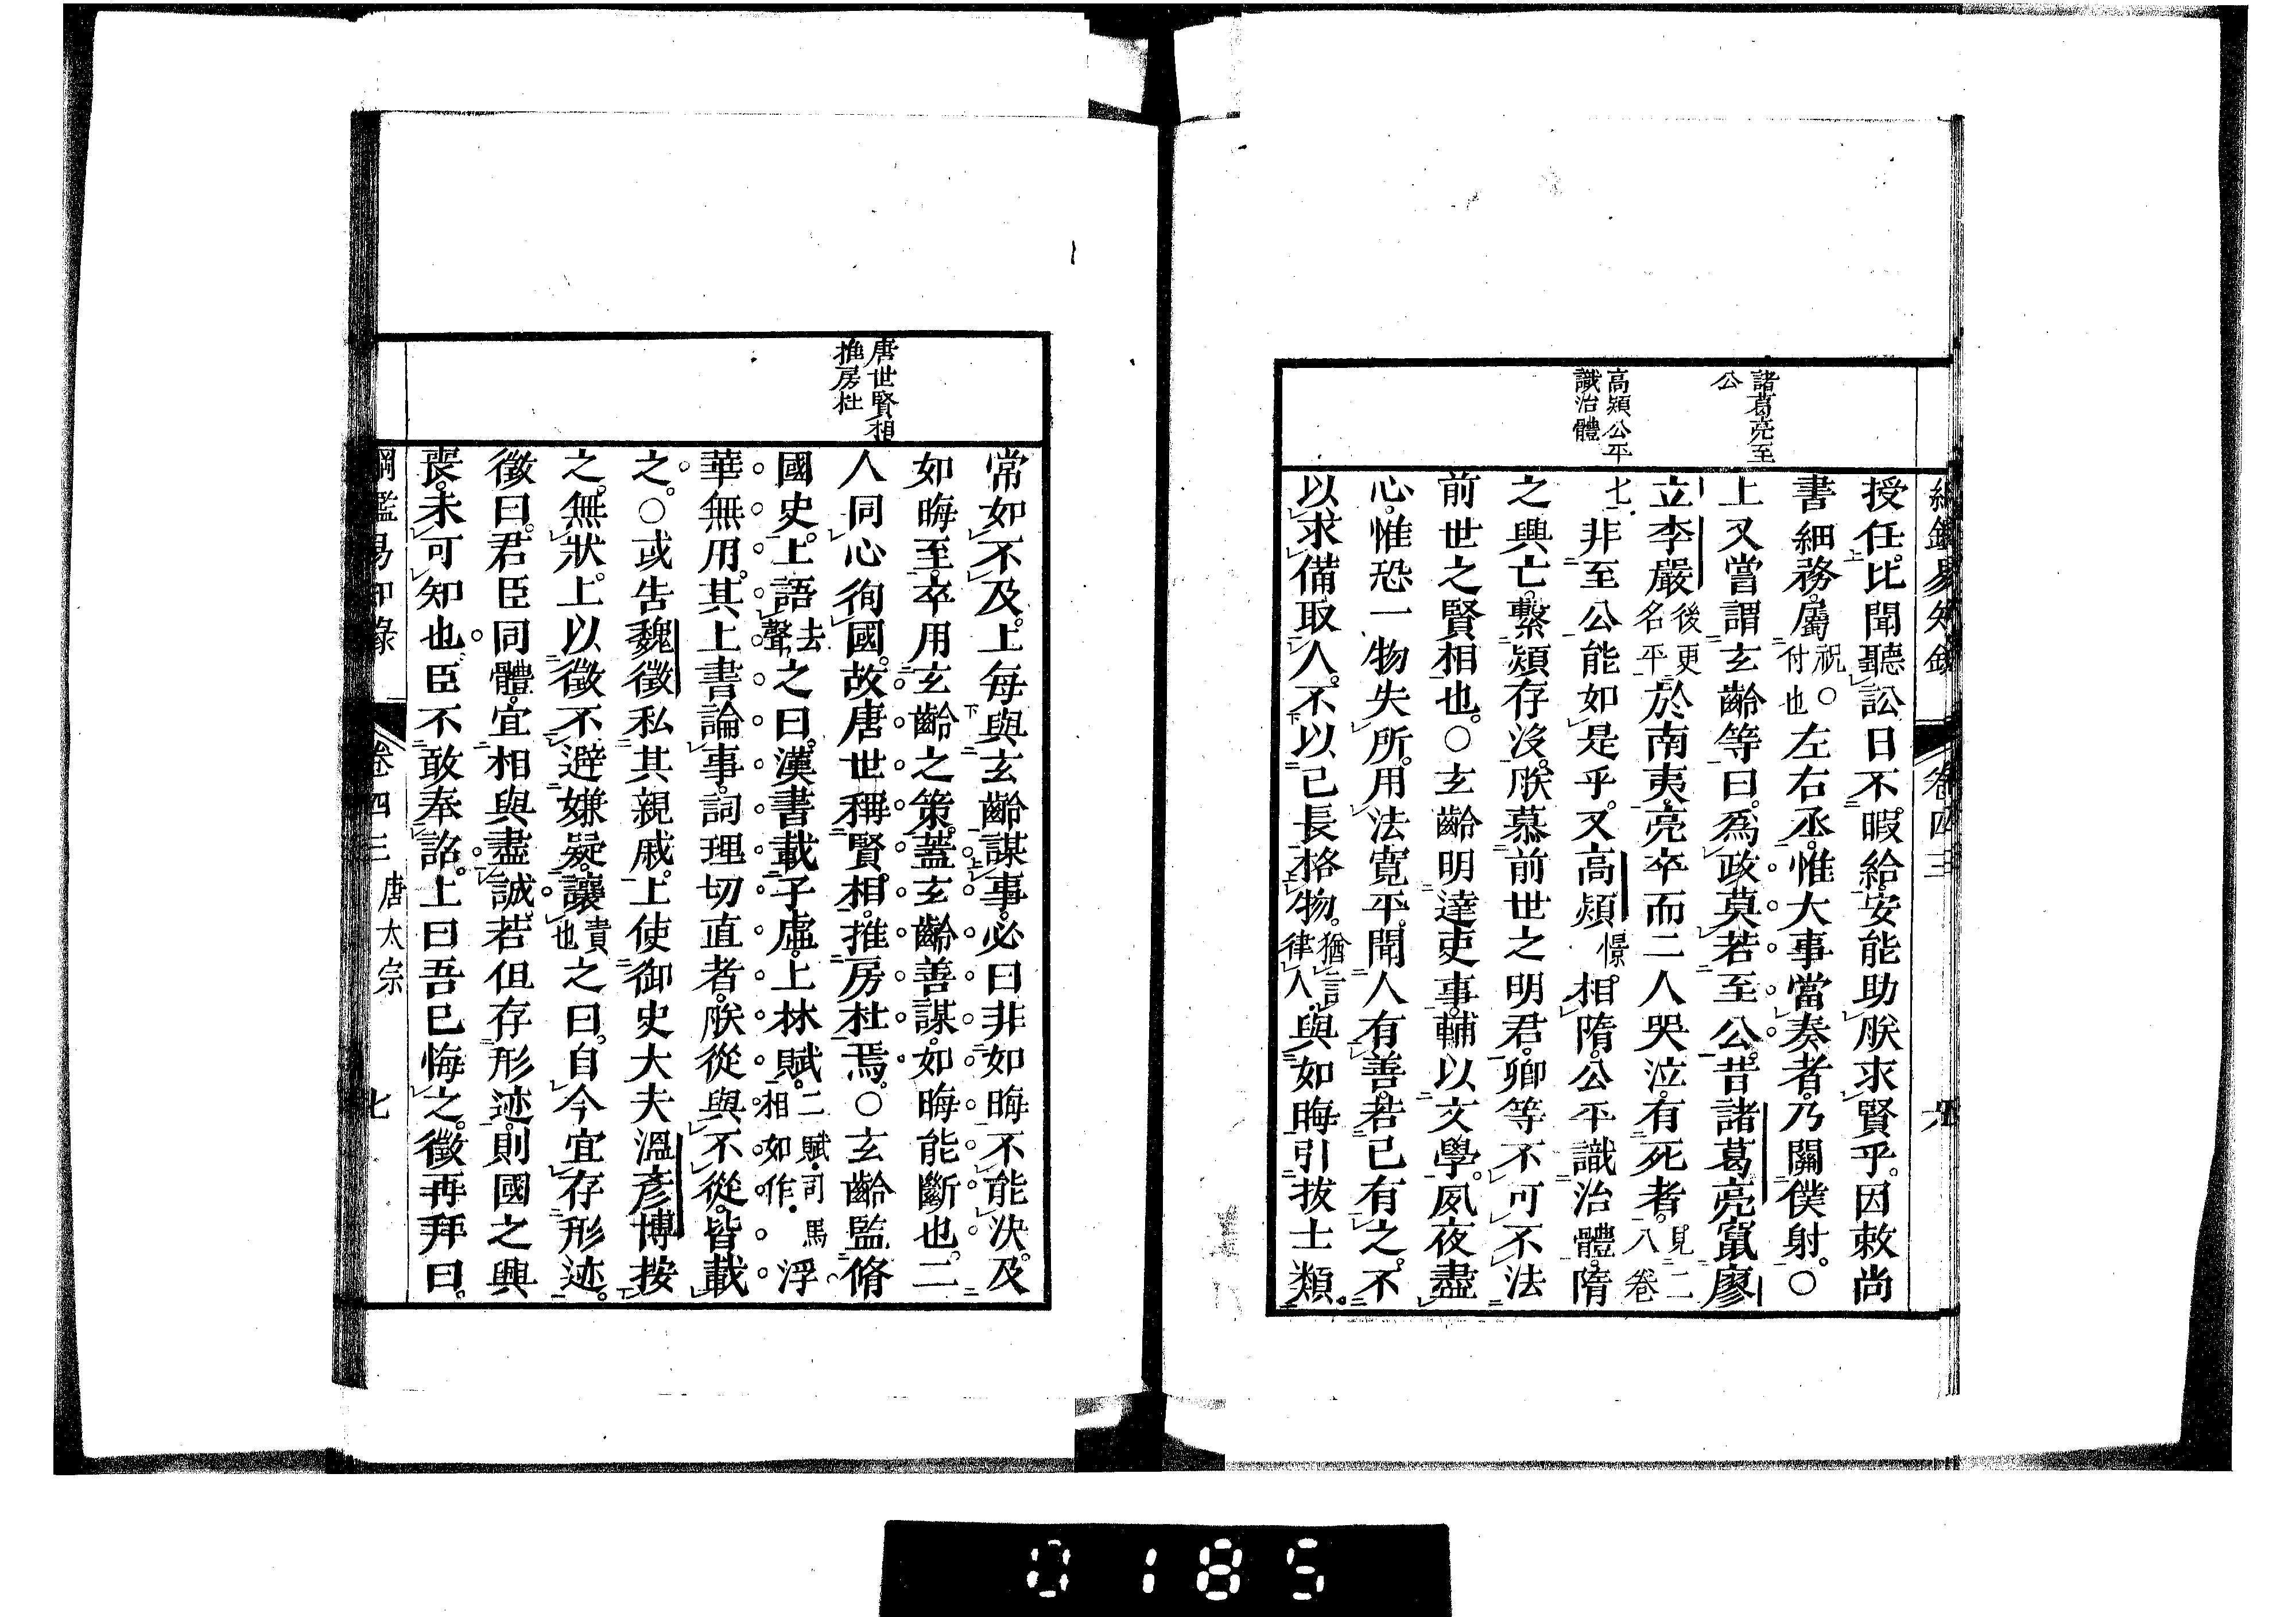 綱鑑易知録 卷四三 六
諸葛亮至
公
高熲公平
識治體
授任。比聞聽訟日不暇給。安能助朕求賢乎。因敕尚
書細務。屬祝付也○左右丞。惟大事當奏者。乃關僕射。○
上又嘗謂玄齡等曰。爲政莫若至公。昔諸葛亮竄廖
立李嚴後更名平於南夷。亮卒而二人哭泣。有死者。見二八卷
七。非至公能如是乎。又高熲憬。相隋。公平識治體。隋
之興亡。繫熲存沒。朕慕前世之明君。卿等不可不法
前世之賢相也。○玄齡明達吏事。輔以文學。夙夜盡
心。惟恐一物失所。用法寬平。聞人有善。若己有之。不
以求備取人。不以己長格物。猶言律人。與如晦引拔士類。
唐世賢相
推房杜
常如不及。上每與玄齡謀事。必曰非如晦不能決。及
如晦至。卒用玄齡之策。蓋玄齡善謀。如晦能斷也。二
人同心徇國。故唐世稱賢相。推房杜焉。○玄齡監脩
國史。上語去聲之曰。漢書載子虛。上林賦。二賦。司馬相如作。浮
華無用。其上書論事。詞理切直者。朕從與不從。皆載
之。○或告魏徵私其親戚。上使御史大夫溫彥博按
之。無狀。上以徵不避嫌疑。讓責也之曰。自今宜存形迹。
徵曰。君臣同體。宜相與盡誠。若但存形迹。則國之興
喪。未可知也。臣不敢奉詔。上曰吾已悔之。徵再拜曰。
綱鑑易知錄 卷四三 唐太宗 七
0185